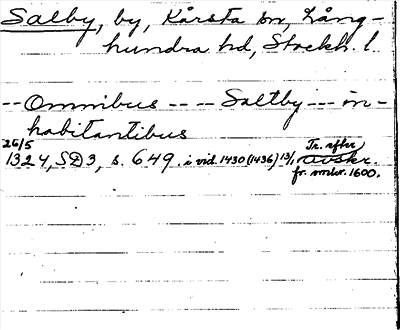 Salby, by, Kårsta sn, Lång-
hundra hd, Stockh. l.
-- Omnibus -- -- Saltby --- in-
habitantibus
26/5 Tr. efter
1324, SD3, s. 649. i vid. 1430 (1436) 13/1 avskr.
fr. omkr. 1600.